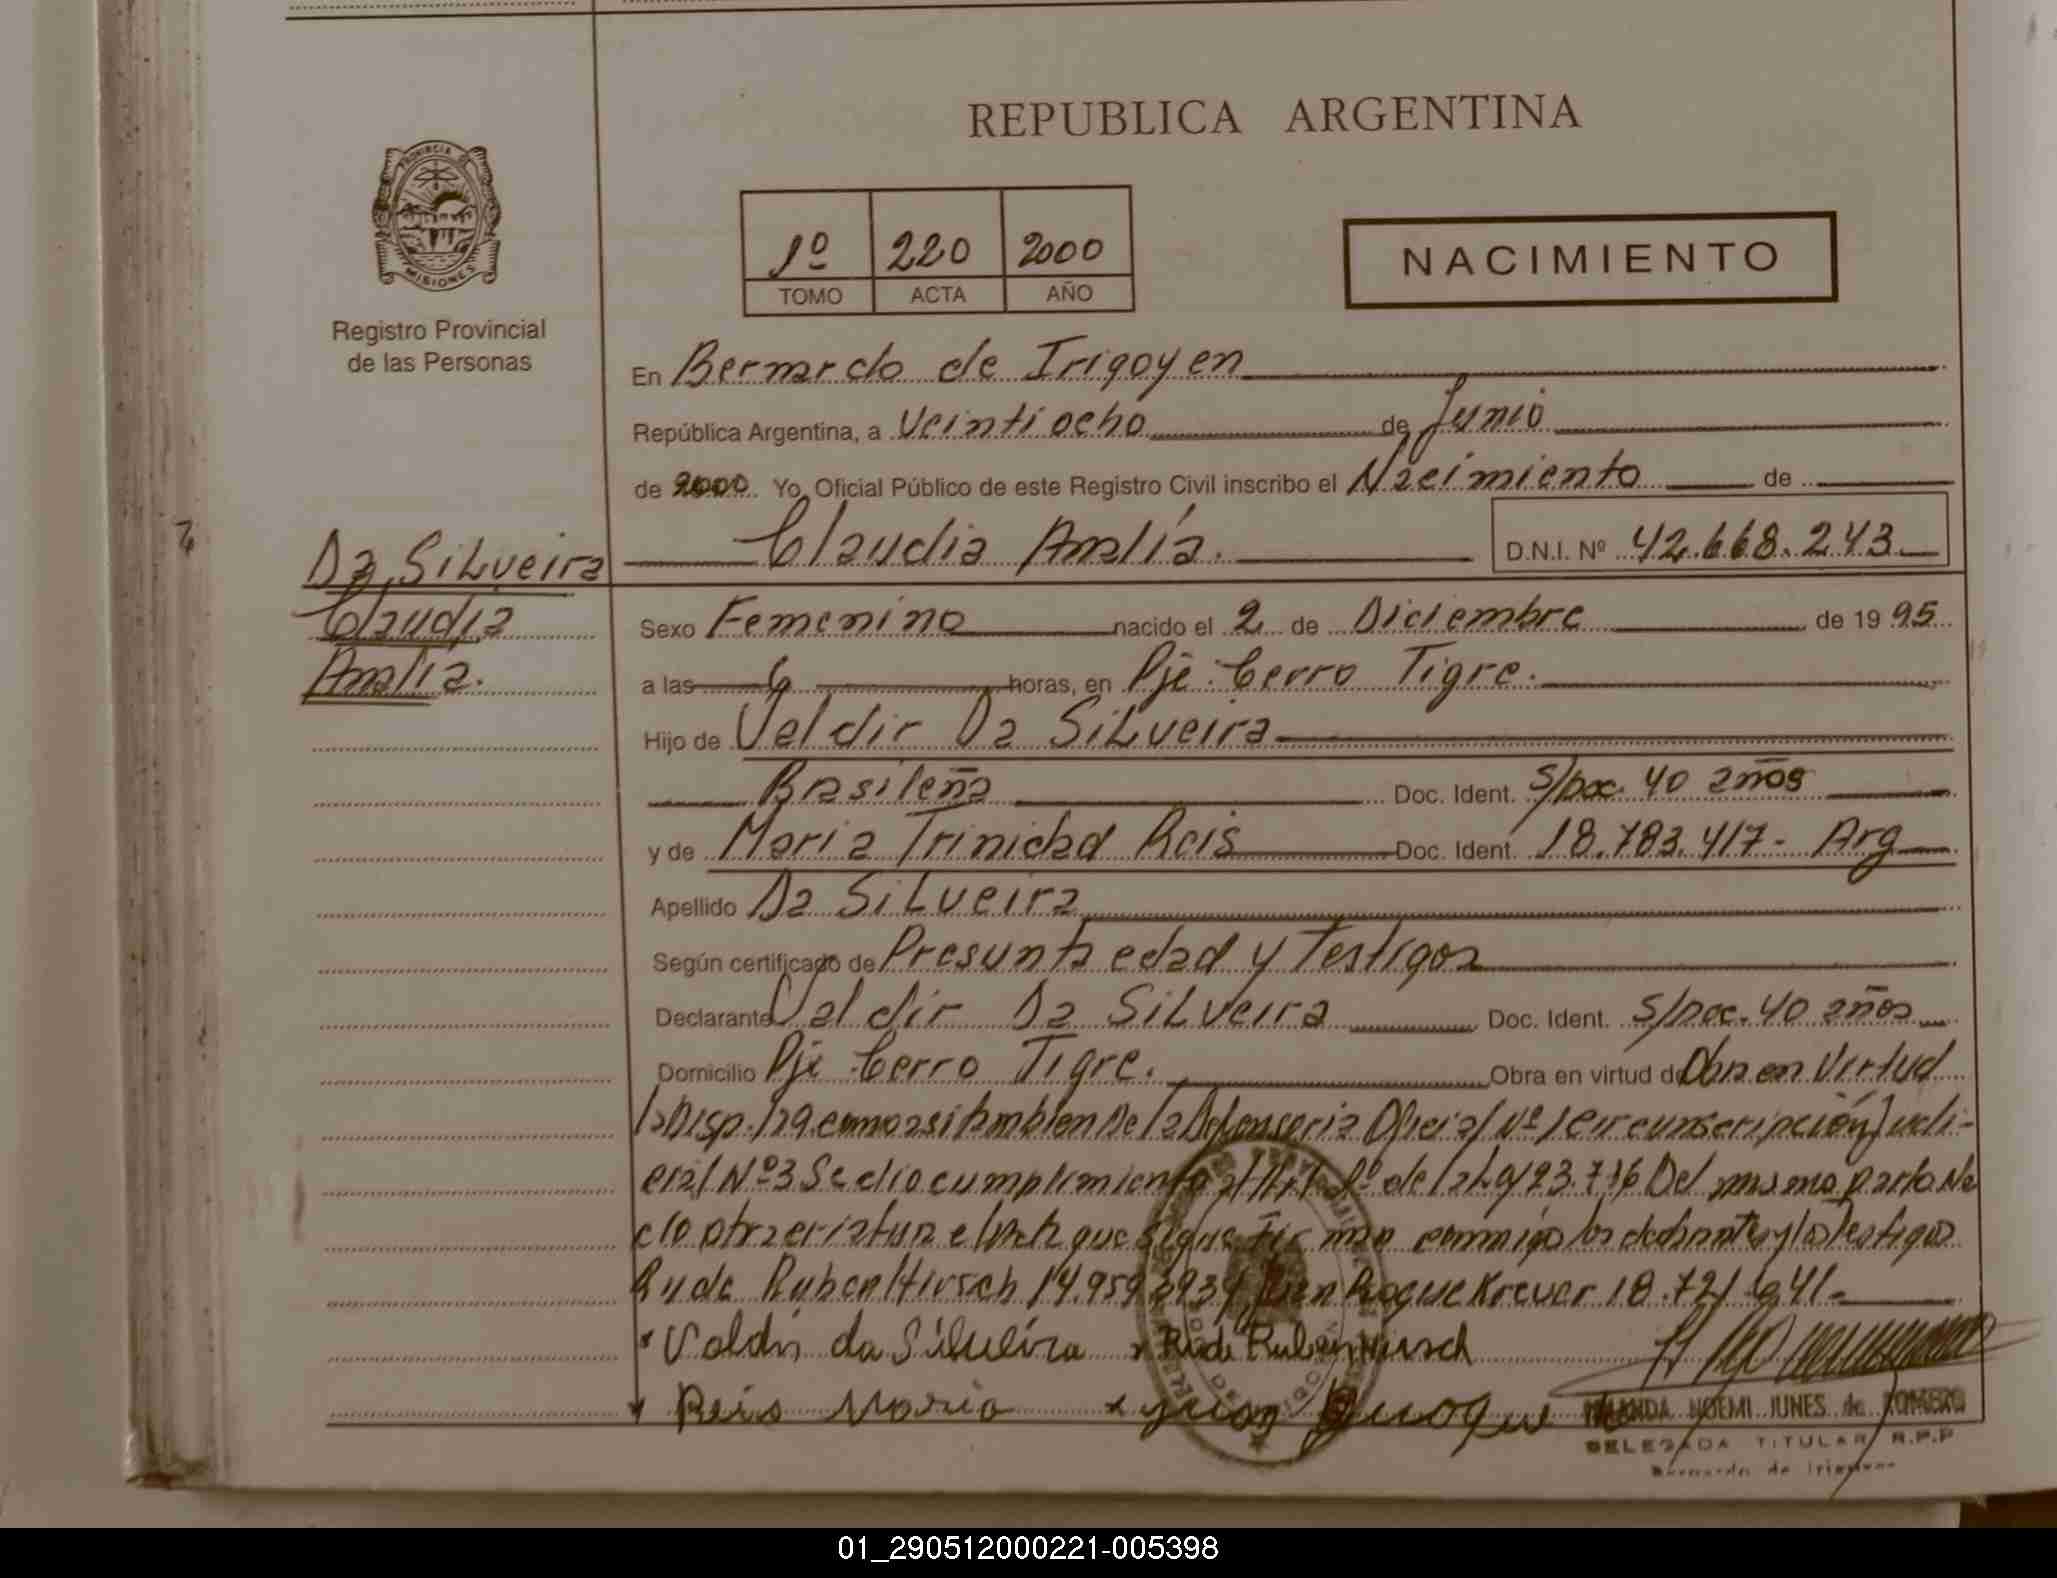 REPUBLICA ARGENTINA
PROVINCIA DE
MISIONES
Registro Provincial
de las Personas
1º 220 2000
TOMO ACTA AÑO
NACIMIENTO
En Bernardo de Irigoyen
República Argentina, a Veintiocho de Junio
de 2000 Yo, Oficial Público de este Registro Civil inscribo el Nacimiento de
Claudia Analía. D.N.I. Nº 42.668.243
Da Silveira
Claudia
Analia.
Sexo Femenino nacido el 2 de Diciembre de 1995
a las 6 horas, en Pje Cerro Tigre.
Hijo de Valdir Da Silveira
Brasileña Doc. Ident. S/Doc. 40 años
y de Maria Trinidad Reis Doc. Ident. 18.783.417- Arg
Apellido Da Silveira
Según certificado de Presunta edad y Testigos
Declarante Valdir Da Silveira Doc. Ident. S/Doc. 40 años
Domicilio Pje Cerro Tigre. Obra en virtud de Obra en Virtud
la Disp. como asi tambien De la Defensoria Oficial Nº 1 Circunscripción Judi-
cial Nº 3 Se dio cumplimiento al Art. de la Ley 23.776 Del mismo parto Na
cio otra criatura el acta que sigue Firman conmigo los declarantes y los Testigos
Rude Ruben Hirsch Juan Roque Krever 18.721.641-
Valdir da Silveira Rude Ruben Hirsch
Reis Maria Juan Roque
NOEMI JUNES de ROMERO
DELEGADA TITULAR R.P.P
Bernardo de Irigoyen
01_290512000221-005398